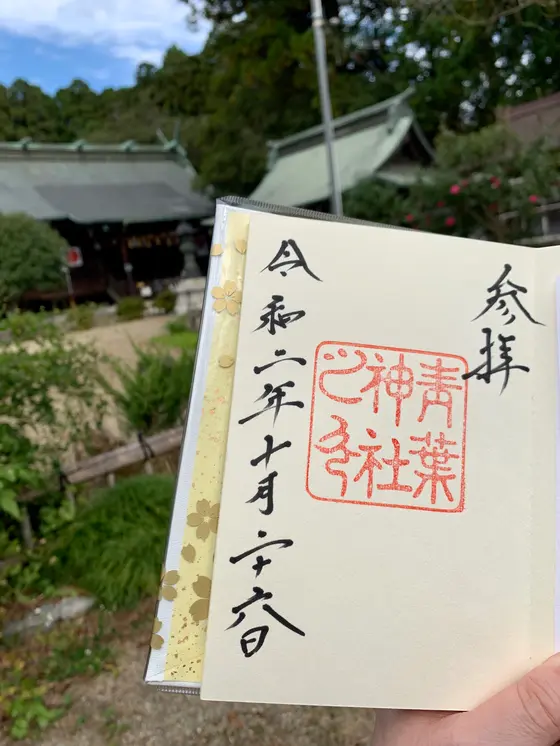 参拝
青葉
神社
之印
令和二年十月二十六日